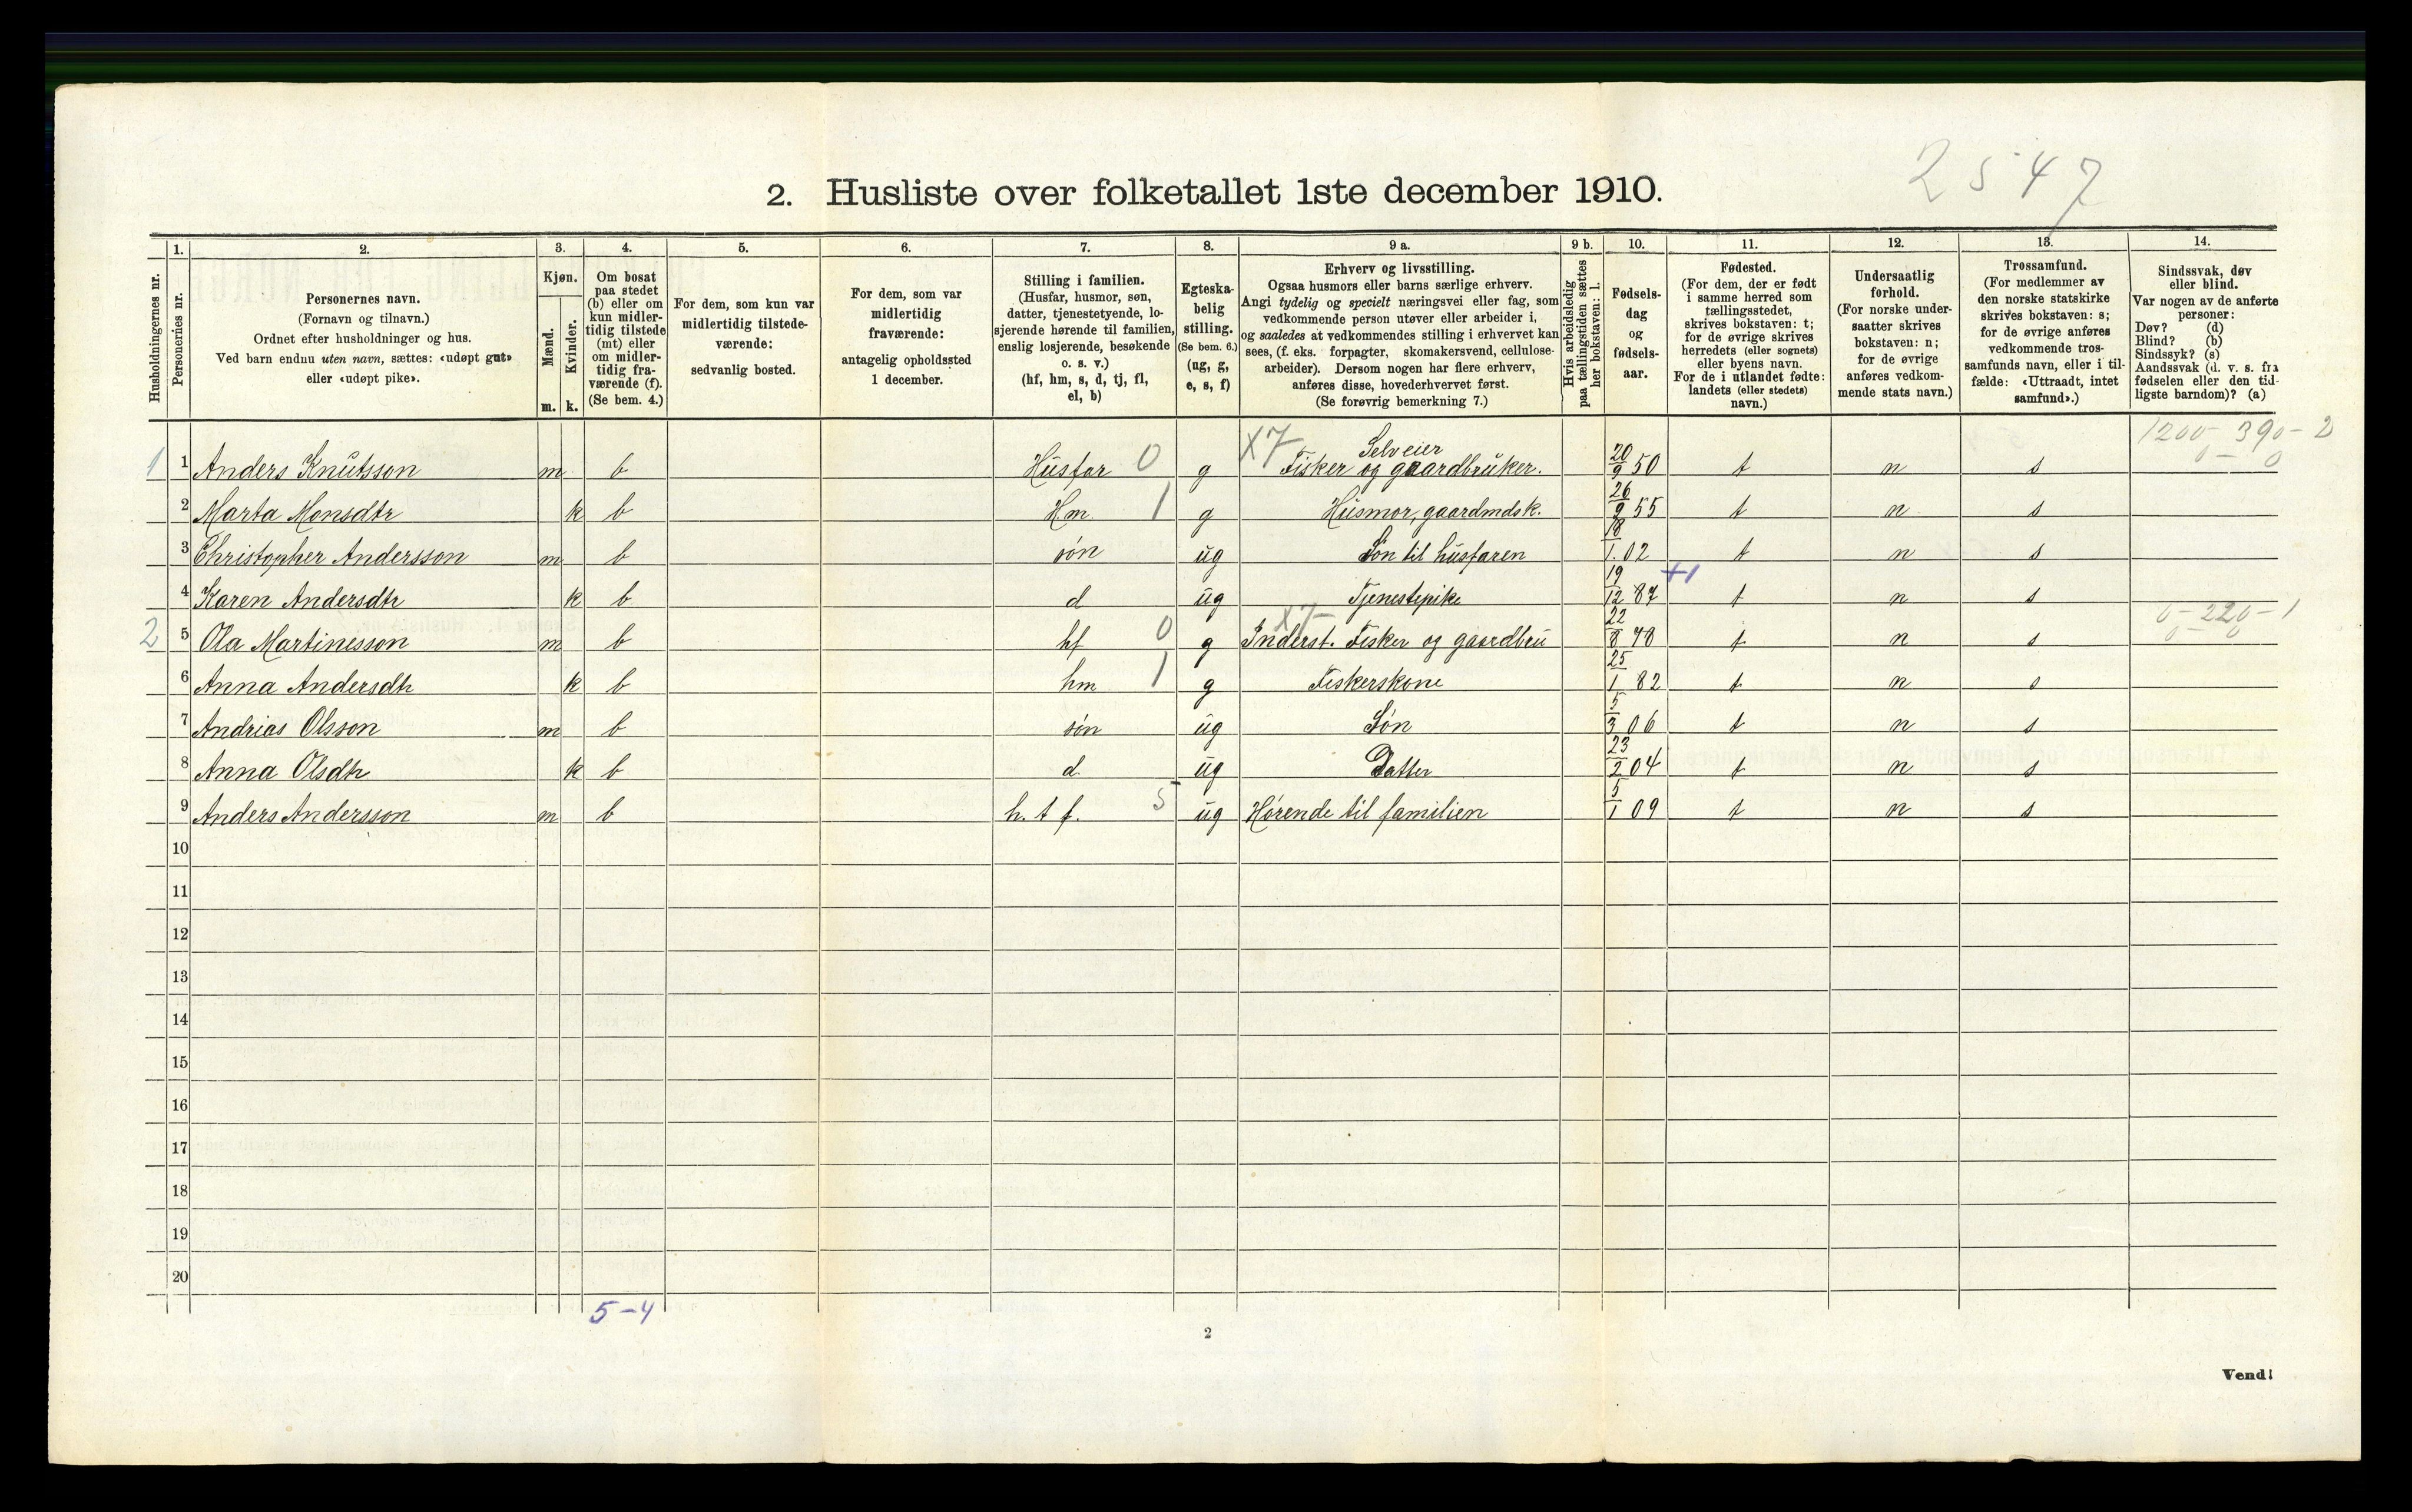 2 5 4 7
2. Husliste over folketallet 1ste december 1910.
Husholdningernes nr.
1.
Personernes nr.
2.
Personernes navn.
(Fornavn og tilnavn.)
Ordnet efter husholdninger og hus.
Ved barn endnu uten navn, sættes: «udøpt gut»
eller «udøpt pike».
3.
Kjøn.
Mænd.
Kvinder.
m. k.
4.
Om bosat
paa stedet
(b) eller om
kun midler-
tidig tilstede
(mt) eller
om midler-
tidig fra-
værende (f).
(Se bem. 4.)
5.
For dem, som kun var
midlertidig tilstede-
værende:
sedvanlig bosted.
6.
For dem, som var
midlertidig
fraværende:
antagelig opholdssted
1 december.
7.
Stilling i familien.
(Husfar, husmor, søn,
datter, tjenestetyende, lo-
sjerende hørende til familien,
enslig losjerende, besøkende
o. s. v.)
(hf, hm, s, d, tj, fl,
el, b)
8.
Egteska-
belig
stilling.
(Se bem. 6.)
(ug, g,
e, s, f)
9 a.
Erhverv og livsstilling.
Ogsaa husmors eller barns særlige erhverv.
Angi tydelig og specielt næringsvei eller fag, som
vedkommende person utøver eller arbeider i,
og saaledes at vedkommendes stilling i erhvervet kan
sees, (f. eks. forpagter, skomakersvend, cellulose-
arbeider). Dersom nogen har flere erhverv,
anføres disse, hovederhvervet først.
(Se forøvrig bemerkning 7.)
9 b.
Hvis arbeidsledig
paa tællingstiden sættes
her bokstaven: l.
10.
Fødsels-
dag
og
fødsels-
aar.
11.
Fødested.
(For dem, der er født
i samme herred som
tællingsstedet,
skrives bokstaven: t;
for de øvrige skrives
herredets (eller sognets)
eller byens navn.
For de i utlandet fødte:
landets (eller stedets)
navn.)
12.
Undersaatlig
forhold.
(For norske under-
saatter skrives
bokstaven: n;
for de øvrige
anføres vedkom-
mende stats navn.)
13.
Trossamfund.
(For medlemmer av
den norske statskirke
skrives bokstaven: s;
for de øvrige anføres
vedkommende tros-
samfunds navn, eller i til-
fælde: «Uttraadt, intet
samfund».)
14.
Sindssvak, døv
eller blind.
Var nogen av de anførte
personer:
Døv? (d)
Blind? (b)
Sindssyk? (s)
Aandssvak (d. v. s. fra
fødselen eller den tid-
ligste barndom)? (a)
1200 - 390 - 2
0 - 0
1 1 Anders Knutsson m b Husfar 0 g X7 Selveier Fisker og gaardbruker. 20/9 50 t n s
2 Marta Monsdtr k b H.m 1 g Husmor, gaardmdsk. 26/9 55 t n s
3 Christopher Andersson m b søn ug Søn til husfaren 18/1. 02 t n s
4 Karen Andersdtr k b d ug Tjenestepike 19/12 87 +1 t n s
0 - 220 - 1
0 - 0
2 5 Ola Martinesson m b hf 0 g X7- Inderst. Fisker og gaardbru 22/8 78 t n s
6 Anna Andersdtr k b hm 1 g Fiskerskone 25/1 82 t n s
7 Andrias Olsson m b søn ug Søn 5/3 06 t n s
8 Anna Olsdtr k b d. ug Datter 23/2 04 t n s
9 Anders Andersson m b h. t f. 5 ug Hørende til familien 5/1 09 t n s
10
11
12
13
14
15
16
17
18
19
20
5-4
2
Vend!